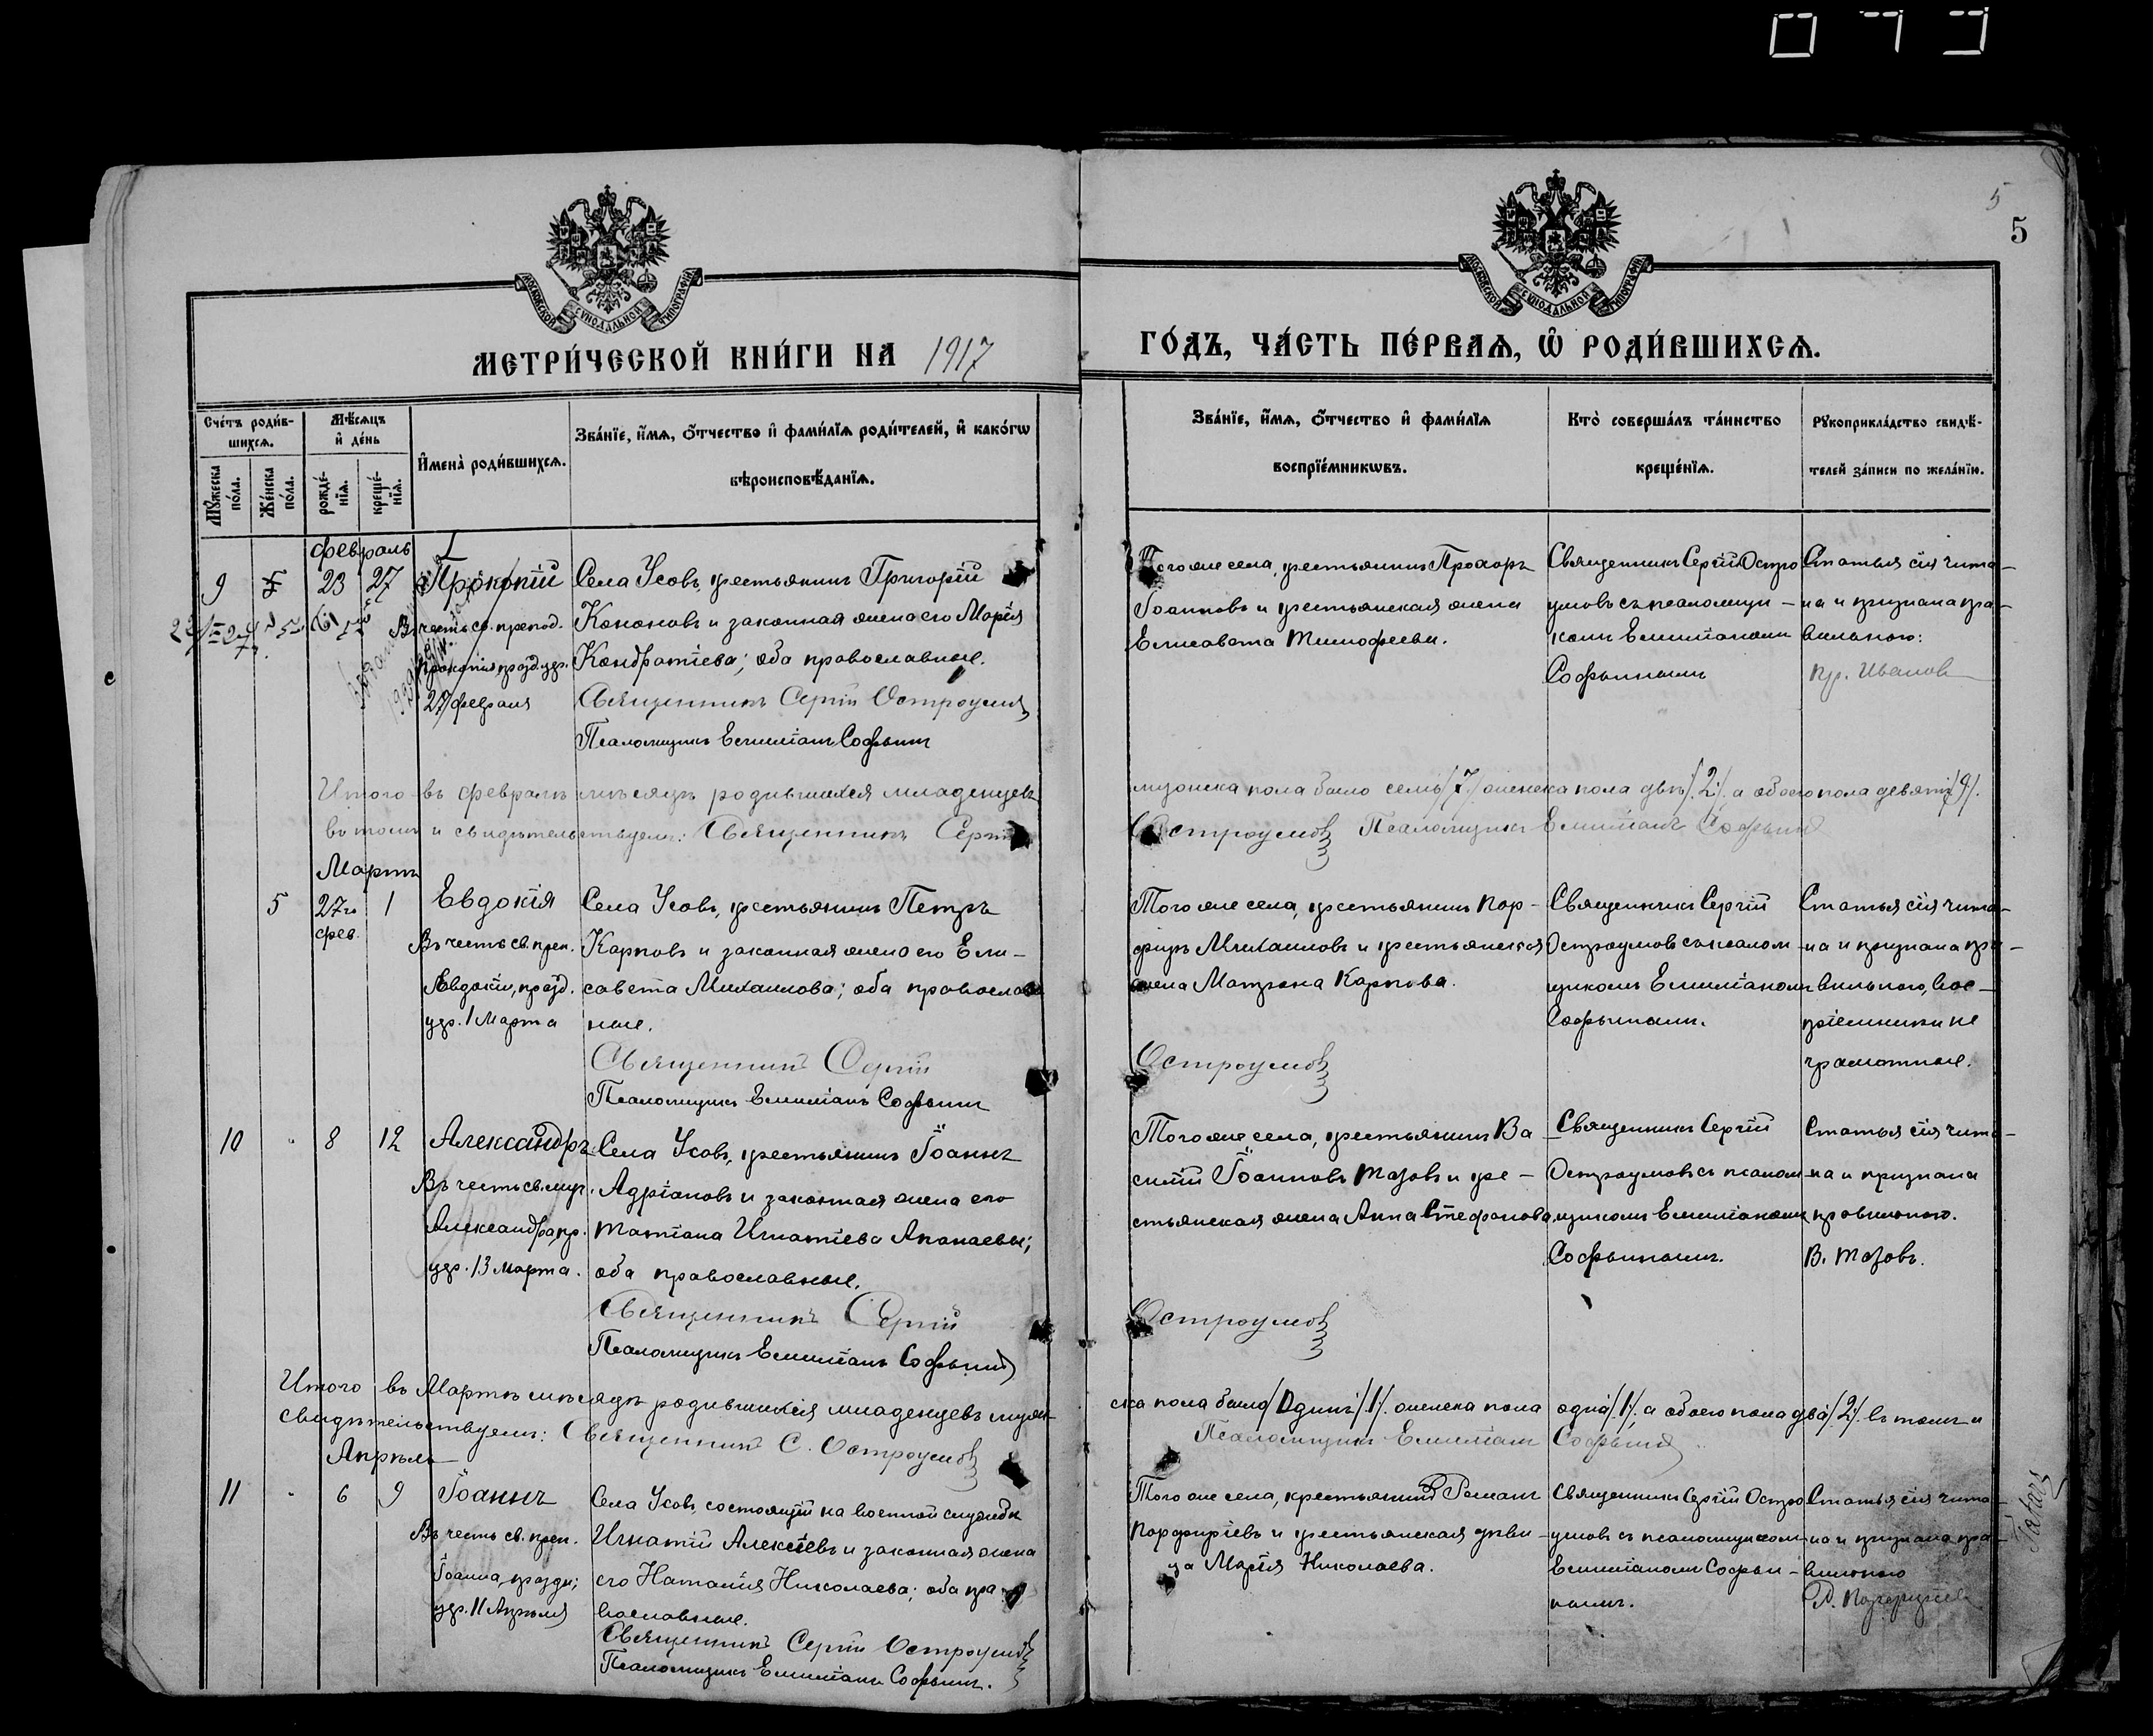 5
5
МОСКОВСКОЙ СѴНОДАЛЬНОЙ ТИПОГРАФІИ
МОСКОВСКОЙ СѴНОДАЛЬНОЙ ТИПОГРАФІИ
МЕТРИ́ЧЕСКОЙ КНИ́ГИ НА 1917
ГО́ДЪ, ЧА́СТЬ ПЕ́РВАѦ, Ѽ РОДИ́ВШИХСѦ.
Сче́тъ роди́в-
шихсѧ.
Мѣ́сѧцъ
и҆ де́нь
Мꙋ́жеска по́ла.
Же́нска по́ла.
рожде́-
нїѧ.
креще́-
нїѧ.
И҆мена̀ роди́вшихсѧ.
Зва́нїе, и҆́мѧ, ѻ҆́тчество и҆ фами́лїѧ роди́телей, и҆ како́гѡ
вѣроисповѣ́данїѧ.
Зва́нїе, и҆́мѧ, ѻ҆́тчество и҆ фами́лїѧ
воспрїе́мникѡвъ.
Кто̀ соверша́лъ та́инство
креще́нїѧ.
Рꙋкоприкла́дство свидѣ́-
телей за́писи по жела́нїю.
февраль
9
23
27
Прокопій
Въ честь св. препод.
Прокопія, празд. удр.
27 февраля
Села Усовъ, крестьянинъ Григорій
Кононовъ и законная жена его Марія
Кондратіева; оба православные.
Священникъ Сергій Остроумовъ
Псаломщикъ Емиліанъ Софьинъ
Того же села, крестьянинъ Прохоръ
Іоанновъ и крестьянская жена
Елисавета Тимофеева.
Священникъ Сергій Остро
умовъ съ псаломщи-
комъ Емиліаномъ
Софьинымъ
Статья сія чита-
на и признана пра-
вильною:
Пр. Иванов
Итого въ февралѣ мѣсяцѣ родившихся младенцевъ мужеска пола было семь /7/ женска пола двѣ /2/, а обоего пола девять /9/.
въ томъ и свидѣтельствуемъ: Священникъ Сергій Остроумовъ Псаломщикъ Емиліанъ Софьинъ
Мартъ
5
27го
фев.
1
Евдокія
Въ честь св. преп.
Евдокіи, празд.
удр. 1 Марта
Села Усовъ, крестьянинъ Петръ
Карповъ и законная жена его Ели-
савета Михаилова; оба православ
ные.
Священникъ Сергій Остроумовъ
Псаломщикъ Емиліанъ Софьинъ
Того же села, крестьянинъ Пор-
фиръ Михаиловъ и крестьянская
жена Матрона Карпова.
Священникъ Сергій
Остроумов съ псалом-
щикомъ Емиліаномъ
Софьинымъ.
Статья сія чита-
на и признана пра-
вильною, вос-
пріемники не
грамотные.
10
8
12
Александръ
Въ честь св. муч.
Александра, пр.
удр. 13 Марта.
Села Усовъ, крестьянинъ Іоаннъ
Адріановъ и законная жена его
Татіана Игнатіева Апанаевы;
оба православные.
Священникъ Сергій Остроумовъ
Псаломщикъ Емиліанъ Софьинъ
Того же села, крестьянинъ Ва
силій Іоанновъ Тазовъ и кре-
стьянская жена Анна Стефанова
Священникъ Сергій
Остроумовъ съ псалом-
щикомъ Емиліаномъ
Софьинымъ.
Статья сія чита-
на и признана
правильною.
В. Тазовъ.
Итого въ Мартѣ мѣсяцѣ родившихся младенцевъ мужеска пола было /Одинъ/1/. женска пола одна /1/, а обоего пола два /2/. въ томъ и
свидѣтельствуемъ: Священникъ С. Остроумовъ Псаломщикъ Емиліанъ Софьинъ
Апрѣль
11
6
9
Іоаннъ
Въ честь св. преп.
Іоанна, праздн;
удр. 11 Апрѣля
Села Усов, состоящій на военной службѣ
Игнатій Алексіевъ и законная жена
его Наталія Николаева; оба пра-
вославные.
Священникъ Сергій Остроумовъ
Псаломщикъ Емиліанъ Софьинъ.
Того же села, крестьянинъ Романъ
Порфиріевъ и крестьянская дѣви-
ца Марія Николаева.
Священникъ Сергій Остро
умовъ съ псаломщикомъ
Емиліаномъ Софьи-
нымъ.
Статья сія чита-
на и признана пра-
вильною
Р. Порфиріев